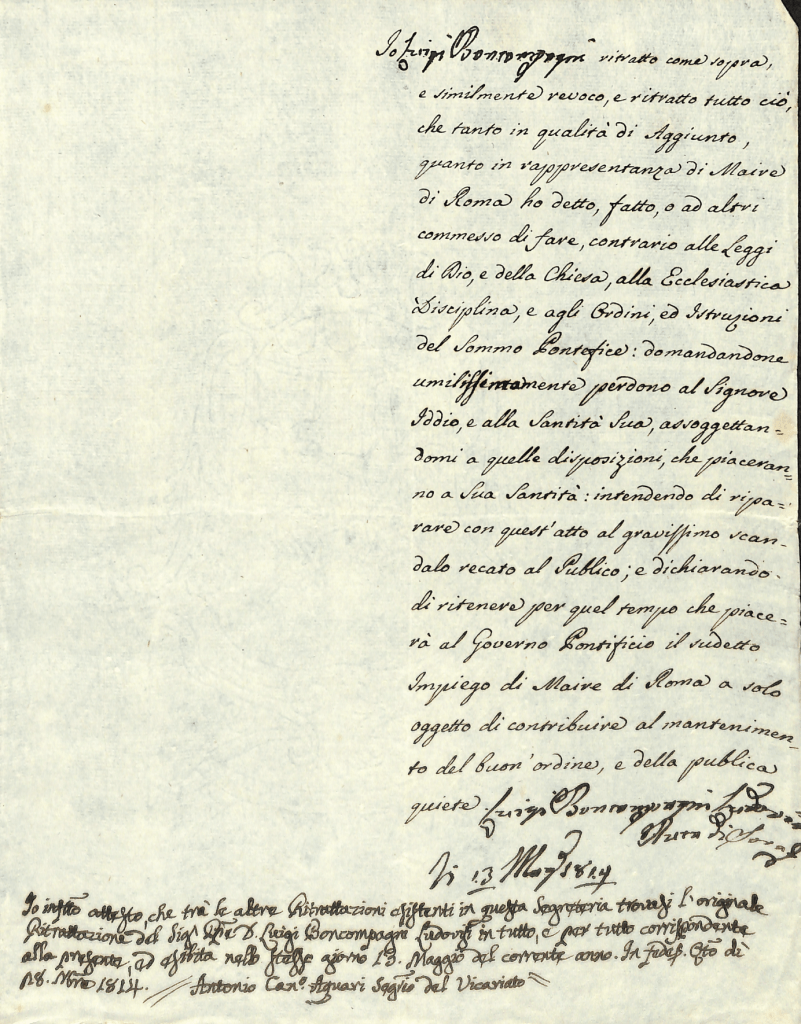 Io Luigi Boncompagni ritratto come sopra,
e similmente revoco, e ritratto tutto ciò,
che tanto in qualità di Aggiunto,
quanto in rappresentanza di Maire
di Roma ho detto, fatto, o ad altri
commesso di fare, contrario alle Leggi
di Dio, e della Chiesa, alla Ecclesiastica
Disciplina, e agli Ordini, ed Istruzioni
del Sommo Pontefice: domandandone
umilissimamente perdono al Signore
Iddio, e alla Santità Sua, assoggettan=
domi a quelle disposizioni, che piaceran=
no a Sua Santità: intendendo di ripa=
rare con quest'atto al gravissimo scan=
dalo recato al Publico; e dichiarando
di ritenere per quel tempo che piace=
rà al Governo Pontificio il sudetto
Impiego di Maire di Roma a solo
oggetto di contribuire al mantenimen=
to del buon'ordine, e della publica
quiete. Luigi Boncompagni Ludovisi
Duca di Sora
li 13 Mag.º 1814
Io infrõ attesto, che trà le altre Ritrattazioni esistenti in questa Segreteria trovasi l'originale
Ritrattazione del Sig.r D. Luigi Boncompagni Ludovisi in tutto, e per tutto corrispondente
alla presente, ed esibita nello stesso giorno 13. Maggio del corrente anno. In fede. Qto dì
18. 1814. Antonio Can.º Aguari Seg̃rio del Vicariato